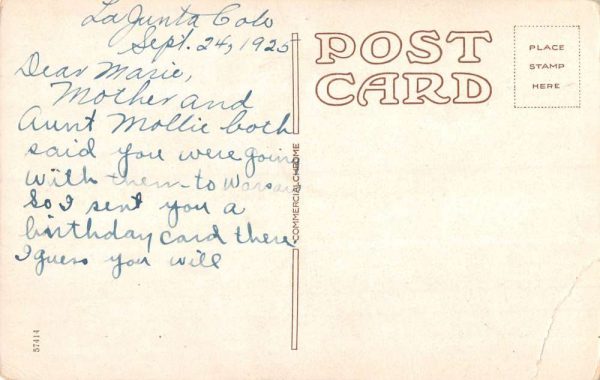 La Junta Colo
Sept. 24, 1925
Dear Marie,
Mother and
Aunt Mollie both
said you were going
with them to Warsaw
So I sent you a
birthday card there
I guess you will
POST
CARD
PLACE
STAMP
HERE
COMMERCIALCHROME
57414